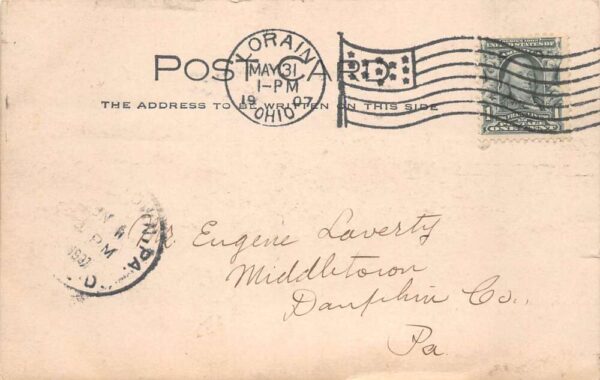 LORAIN
MAY 31
1-PM
1907
OHIO
POST CARD
THE ADDRESS TO BE WRITTEN ON THIS SIDE
SERIES 1902
UNITED STATES OF AMERICA
FRANKLIN
POSTAGE
ONE CENT
PM
1907
PA.
Mr Eugene Laverty
Middletown
Dauphin Co.,
Pa